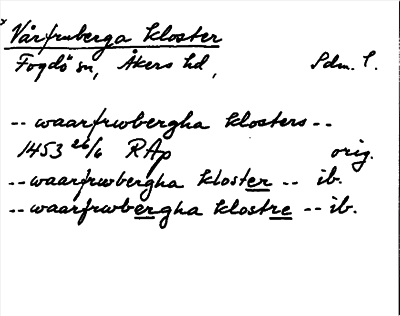 Vårfruberga kloster
Fogdö sn, Åkers hd, Sdm. l.
-- waarfrwbergha klosters --
1453 26/6 RAp orig.
-- waarfrwbergha kloster -- ib.
-- waarfrwbergha klostre -- ib.